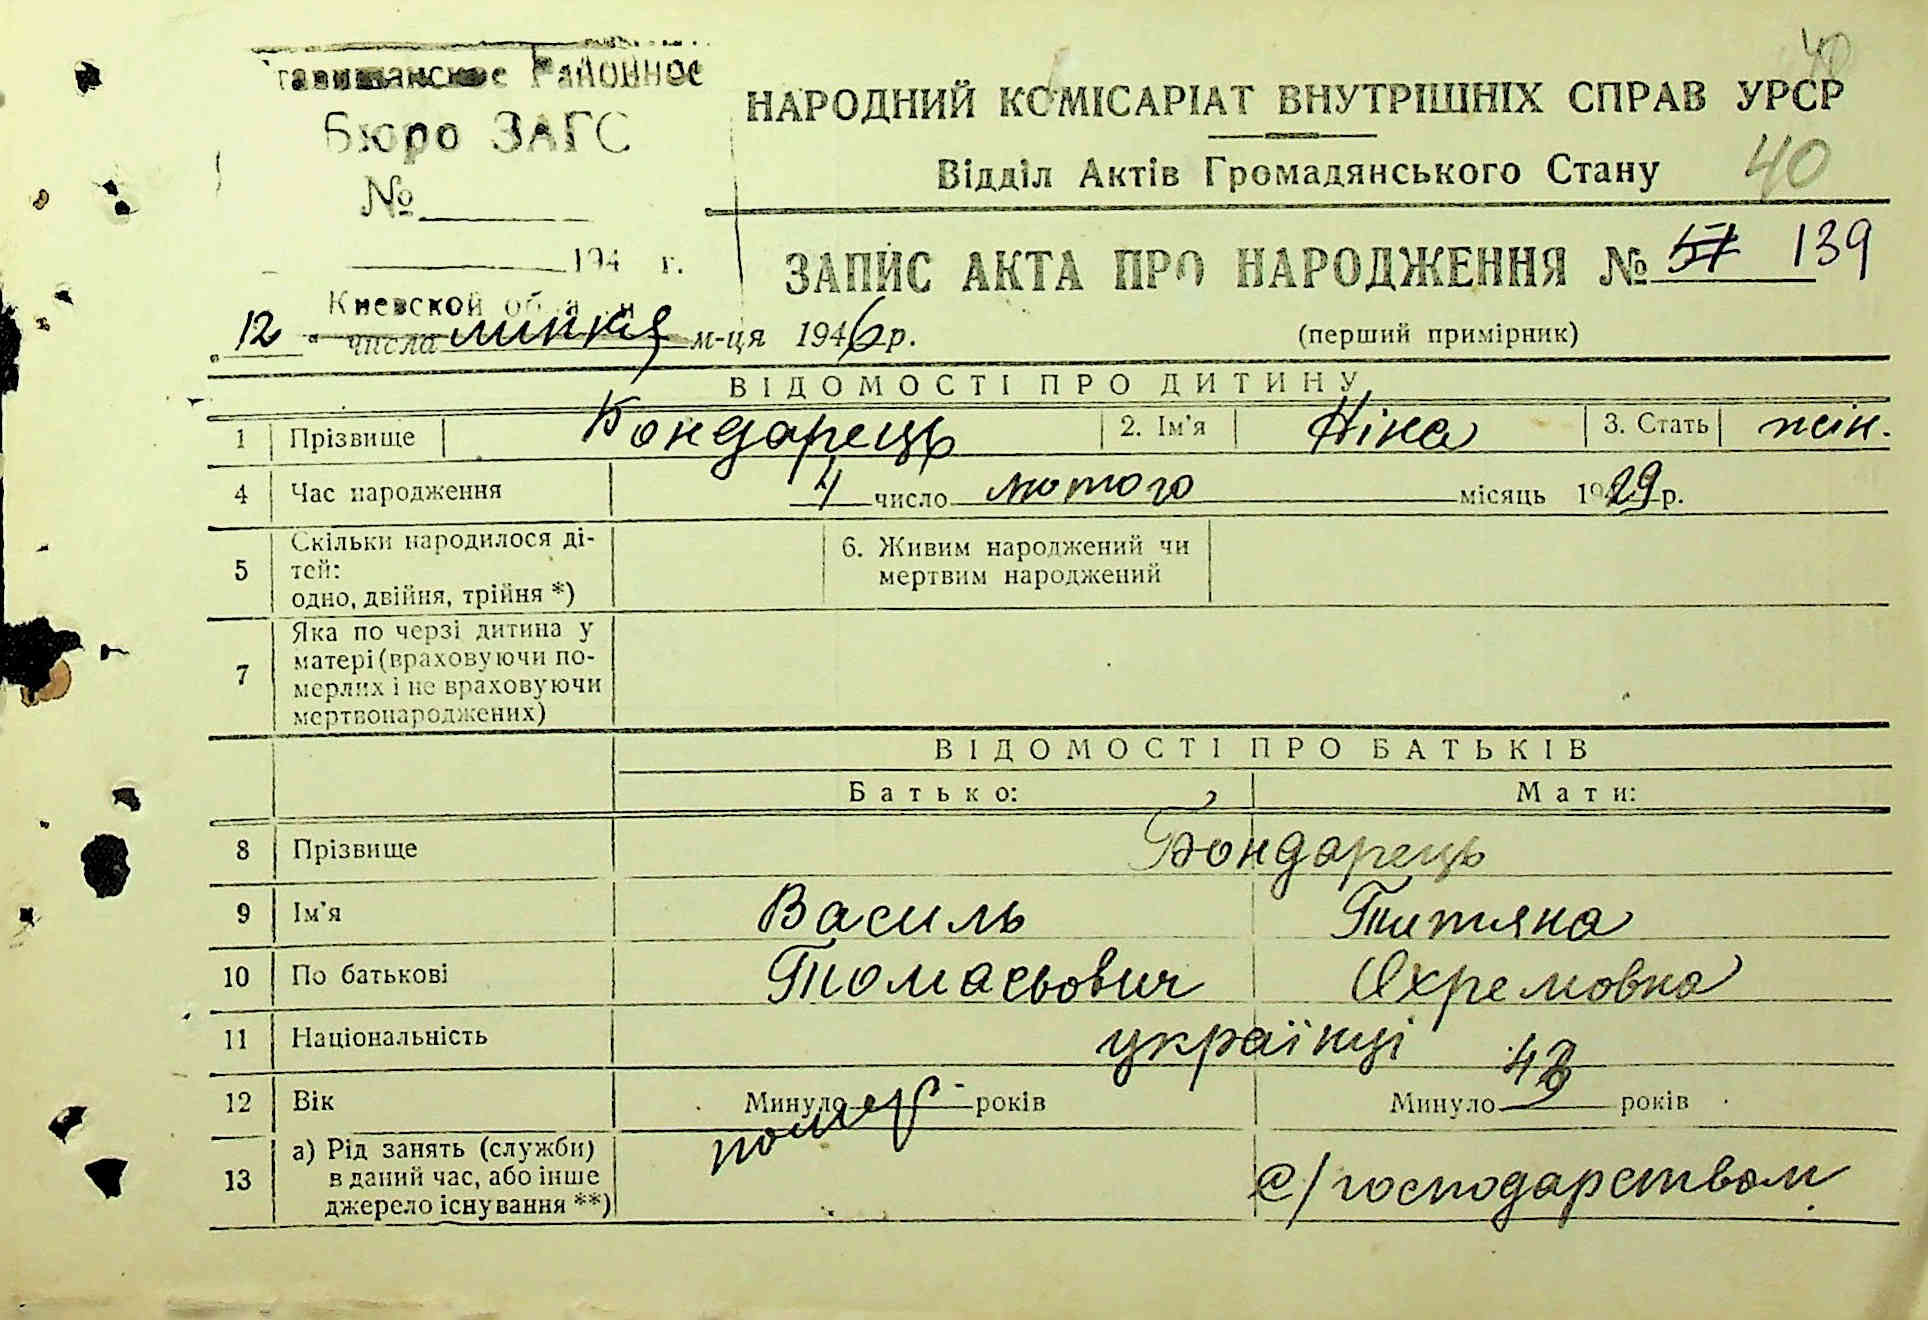 Районное
Бюро ЗАГС
№
194 г.
Киевской
40
НАРОДНИЙ КОМІСАРІАТ ВНУТРІШНІХ СПРАВ УРСР
Відділ Актів Громадянського Стану 40
ЗАПИС АКТА ПРО НАРОДЖЕННЯ № 57 139
"12" числа липня м-ця 1946 р.
(перший примірник)
ВІДОМОСТІ ПРО ДИТИНУ
1 Прізвище Бондарець 2. Ім'я Ніна 3. Стать жін.
4 Час народження 4 число лютого місяць 1929 р.
5 Скільки народилося ді-
тей:
одно, двійня, трійня *)
6. Живим народжений чи
мертвим народжений
7 Яка по черзі дитина у
матері (враховуючи по-
мерлих і не враховуючи
мертвонароджених)
ВІДОМОСТІ ПРО БАТЬКІВ
Батько: Мати:
8 Прізвище Бондарець
9 Ім'я Василь Титяна
10 По батькові Томасьович Охремовна
11 Національність українці
12 Вік Минуло помер років Минуло 43 років
13 а) Рід занять (служби)
в даний час, або інше
джерело існування **)
с/господарством